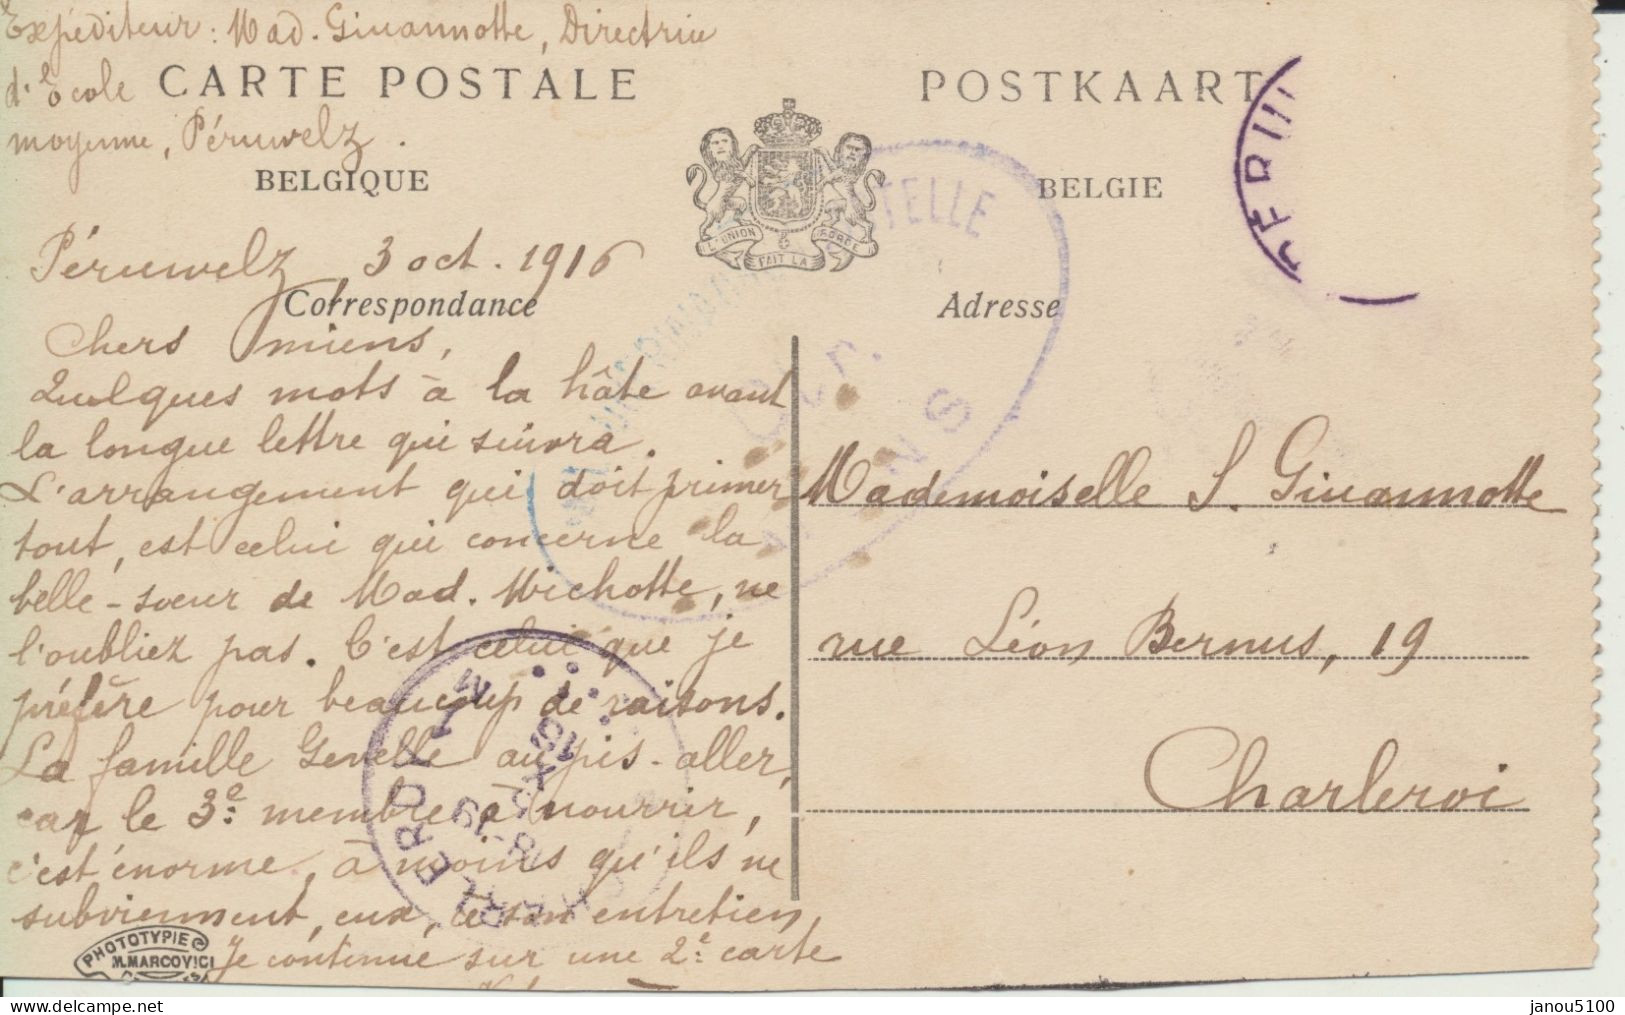 Expéditeur : Mad. Ginannotte, Directrice
d'Ecole
CARTE POSTALE
moyenne, Péruwelz.
BELGIQUE
POSTKAART
BELGIE
L'UNION FAIT LA FORCE
Péruwelz, 3 oct. 1916
Correspondance
Chers miens,
Quelques mots à la hâte avant
la longue lettre qui suivra.
L'arrangement qui doit primer
tout, est celui qui concerne la
belle-soeur de Mad. Michotte, ne
l'oubliez pas. C'est celui que je
préfère pour beaucoup de raisons.
La famille Genelle au pis-aller,
car le 3e: membre à nourrir,
c'est énorme, à moins qu'ils ne
subviennent, eux, à son entretien,
Je continue sur une 2e: carte
PHOTOTYPIE
M. MARCOVICI
Adresse
Mademoiselle S. Ginannotte
rue Léon Bernus, 19
Charleroi
CHARLEROI
janou5100